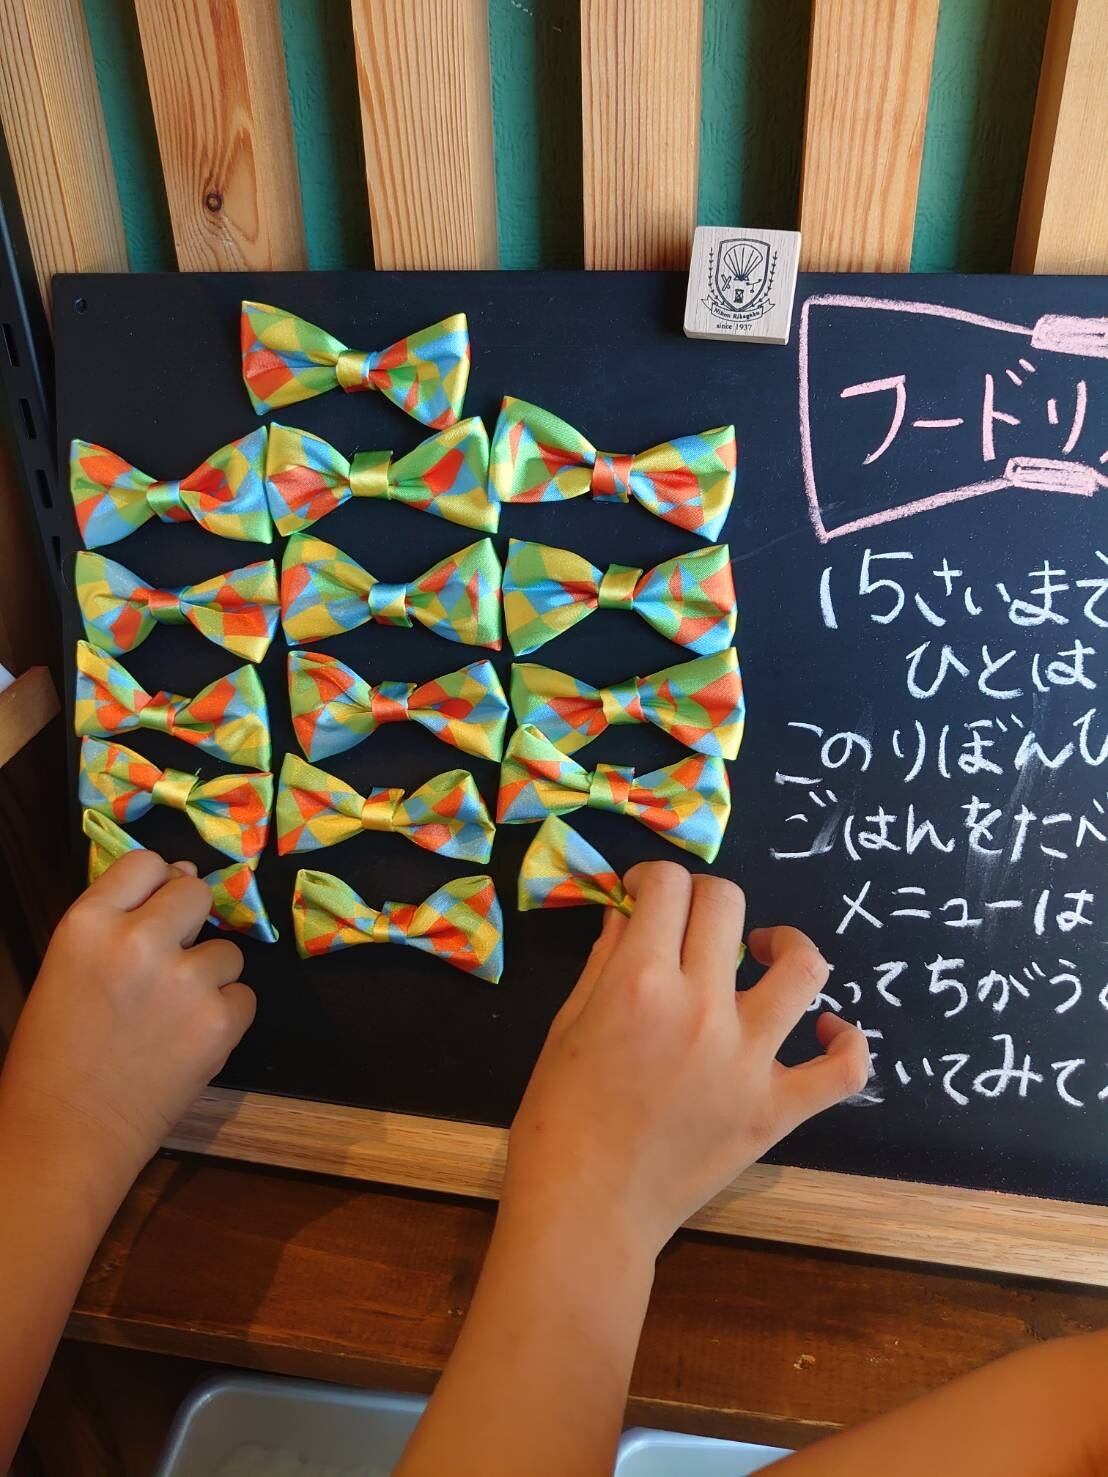 Nihon Rikagaku
since 1937
フードリ
15さいまで
ひとは
このりぼん
ごはんをたべ
メニューは
ってちがう
いてみて